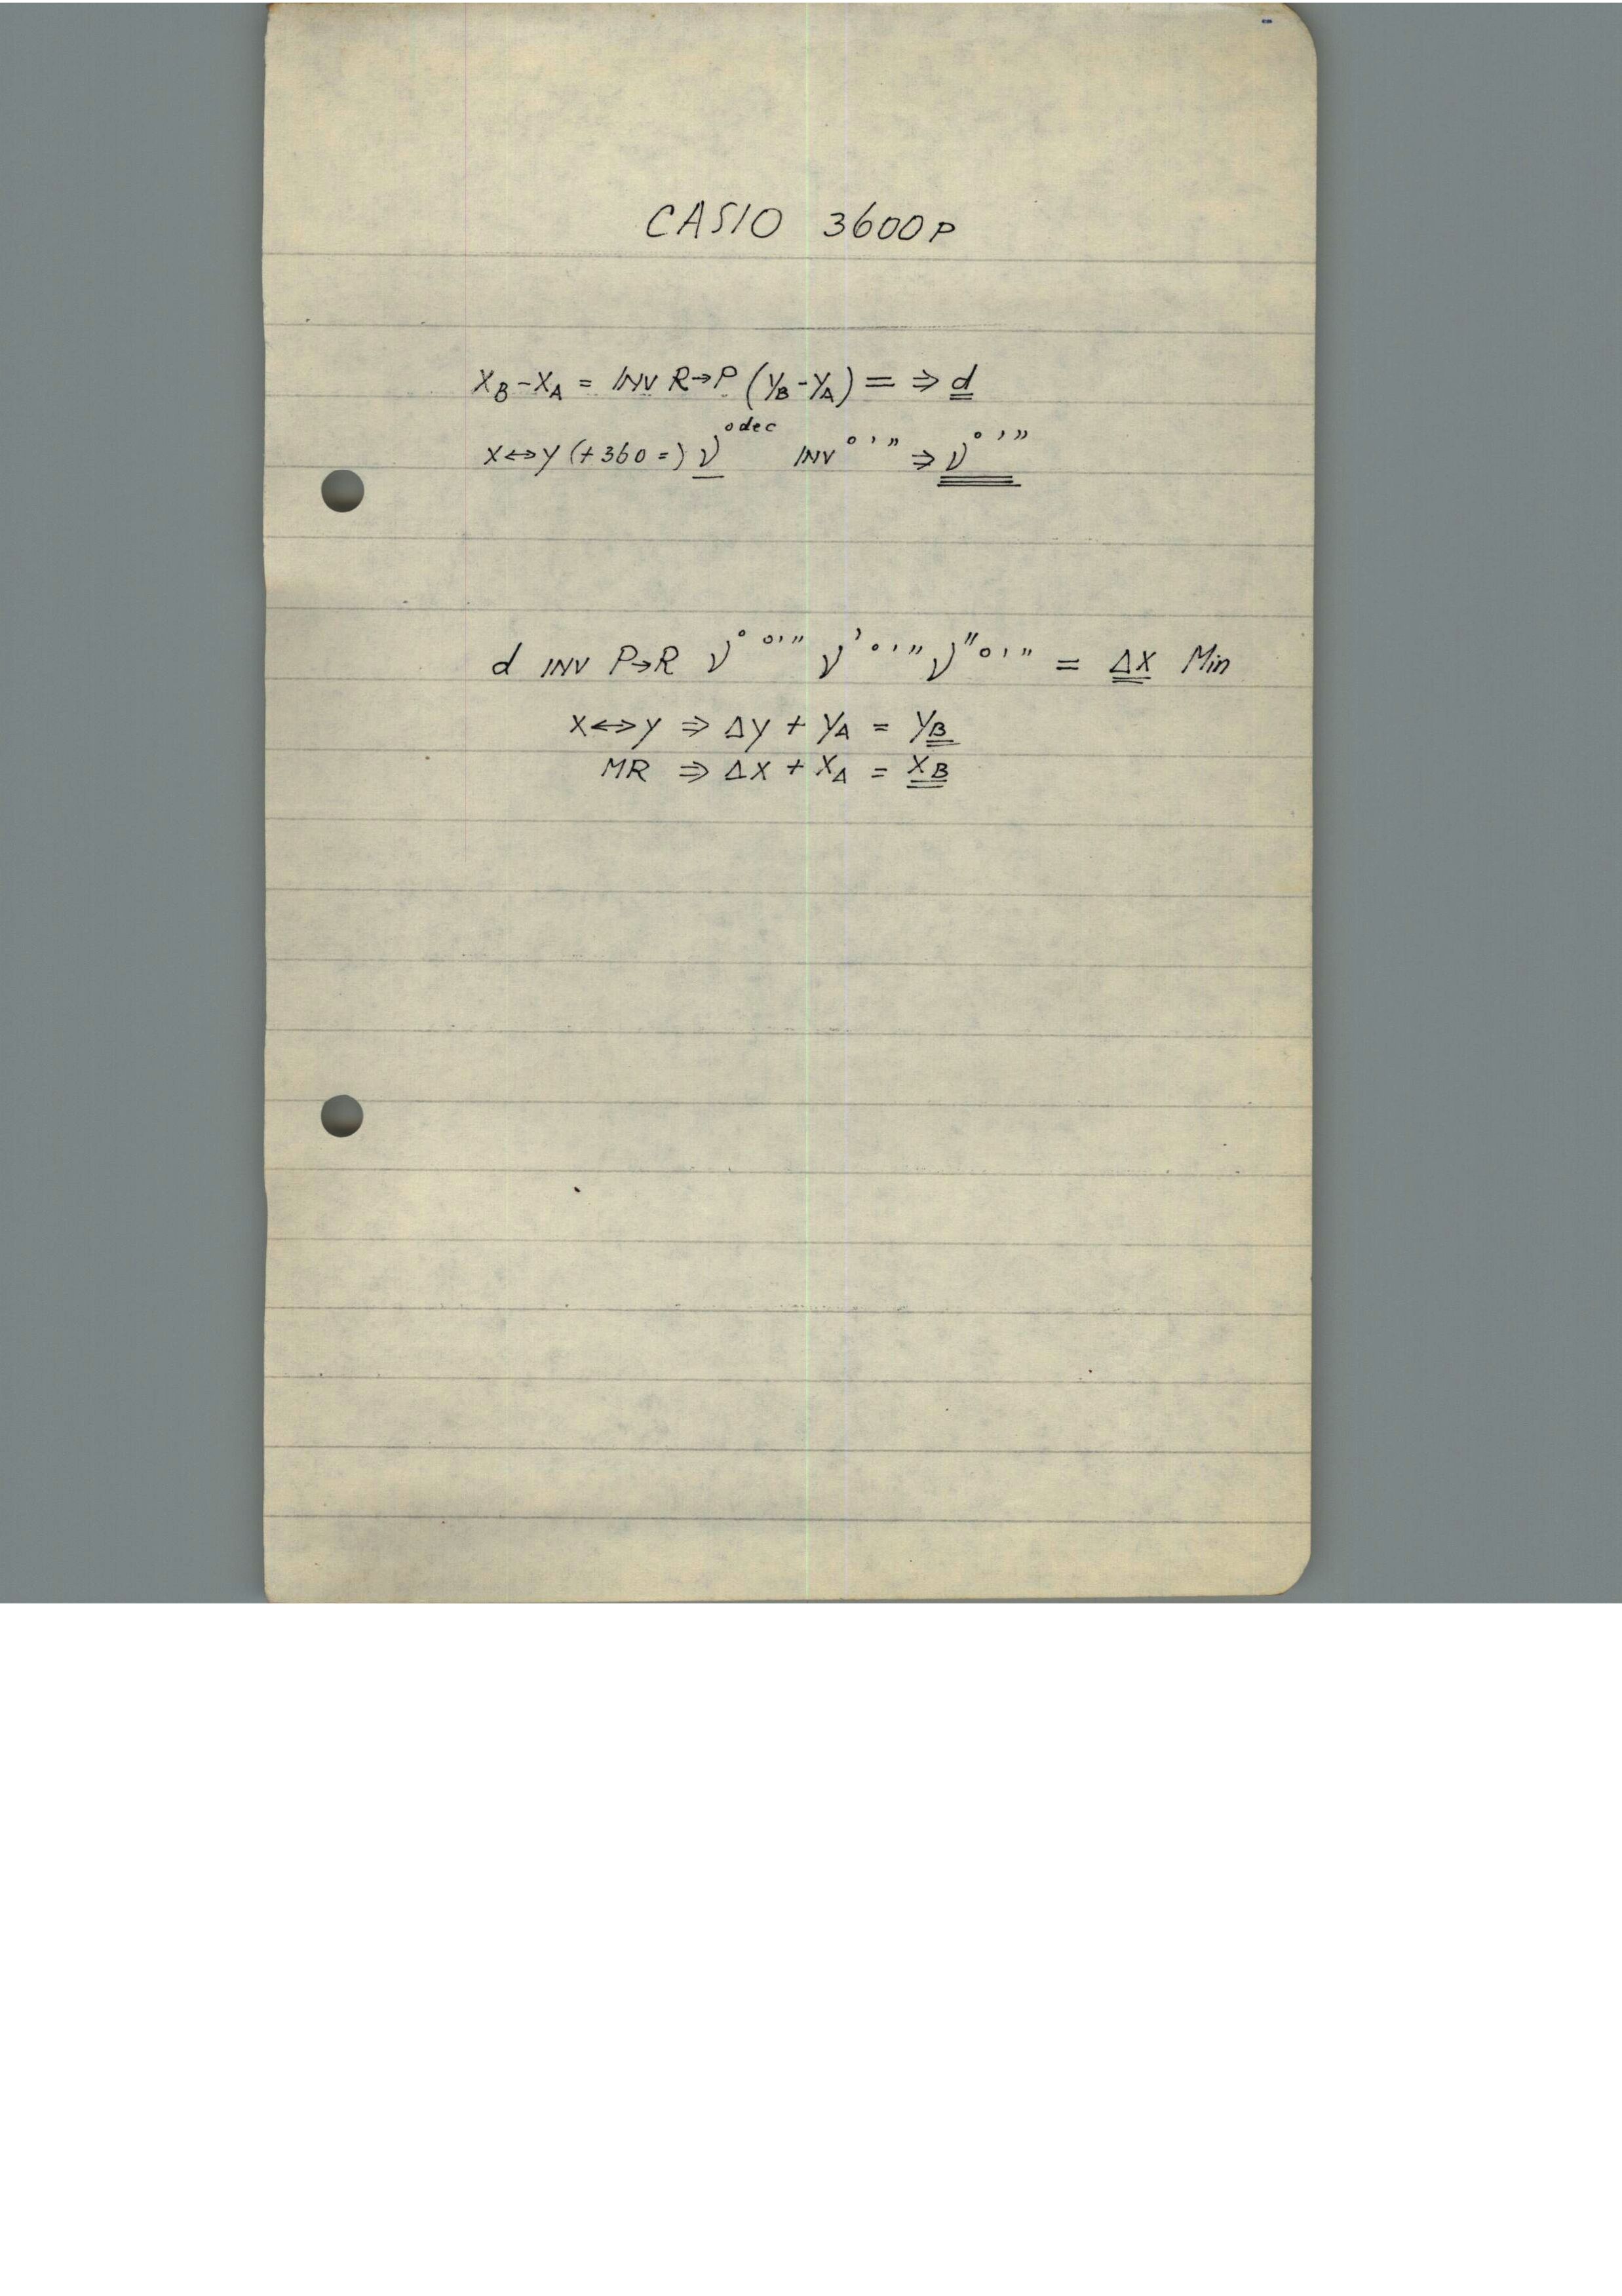 CASIO 3600P
X_B - X_A = INV R→P (Y_B - Y_A) = ⇒ d
X↔Y (+360 =) ν° dec INV ° ' " ⇒ ν° ' "
d INV P→R ν° ° ' " ν' ° ' " ν" ° ' " = ΔX Min
X↔Y ⇒ ΔY + Y_A = Y_B
MR ⇒ ΔX + X_A = X_B